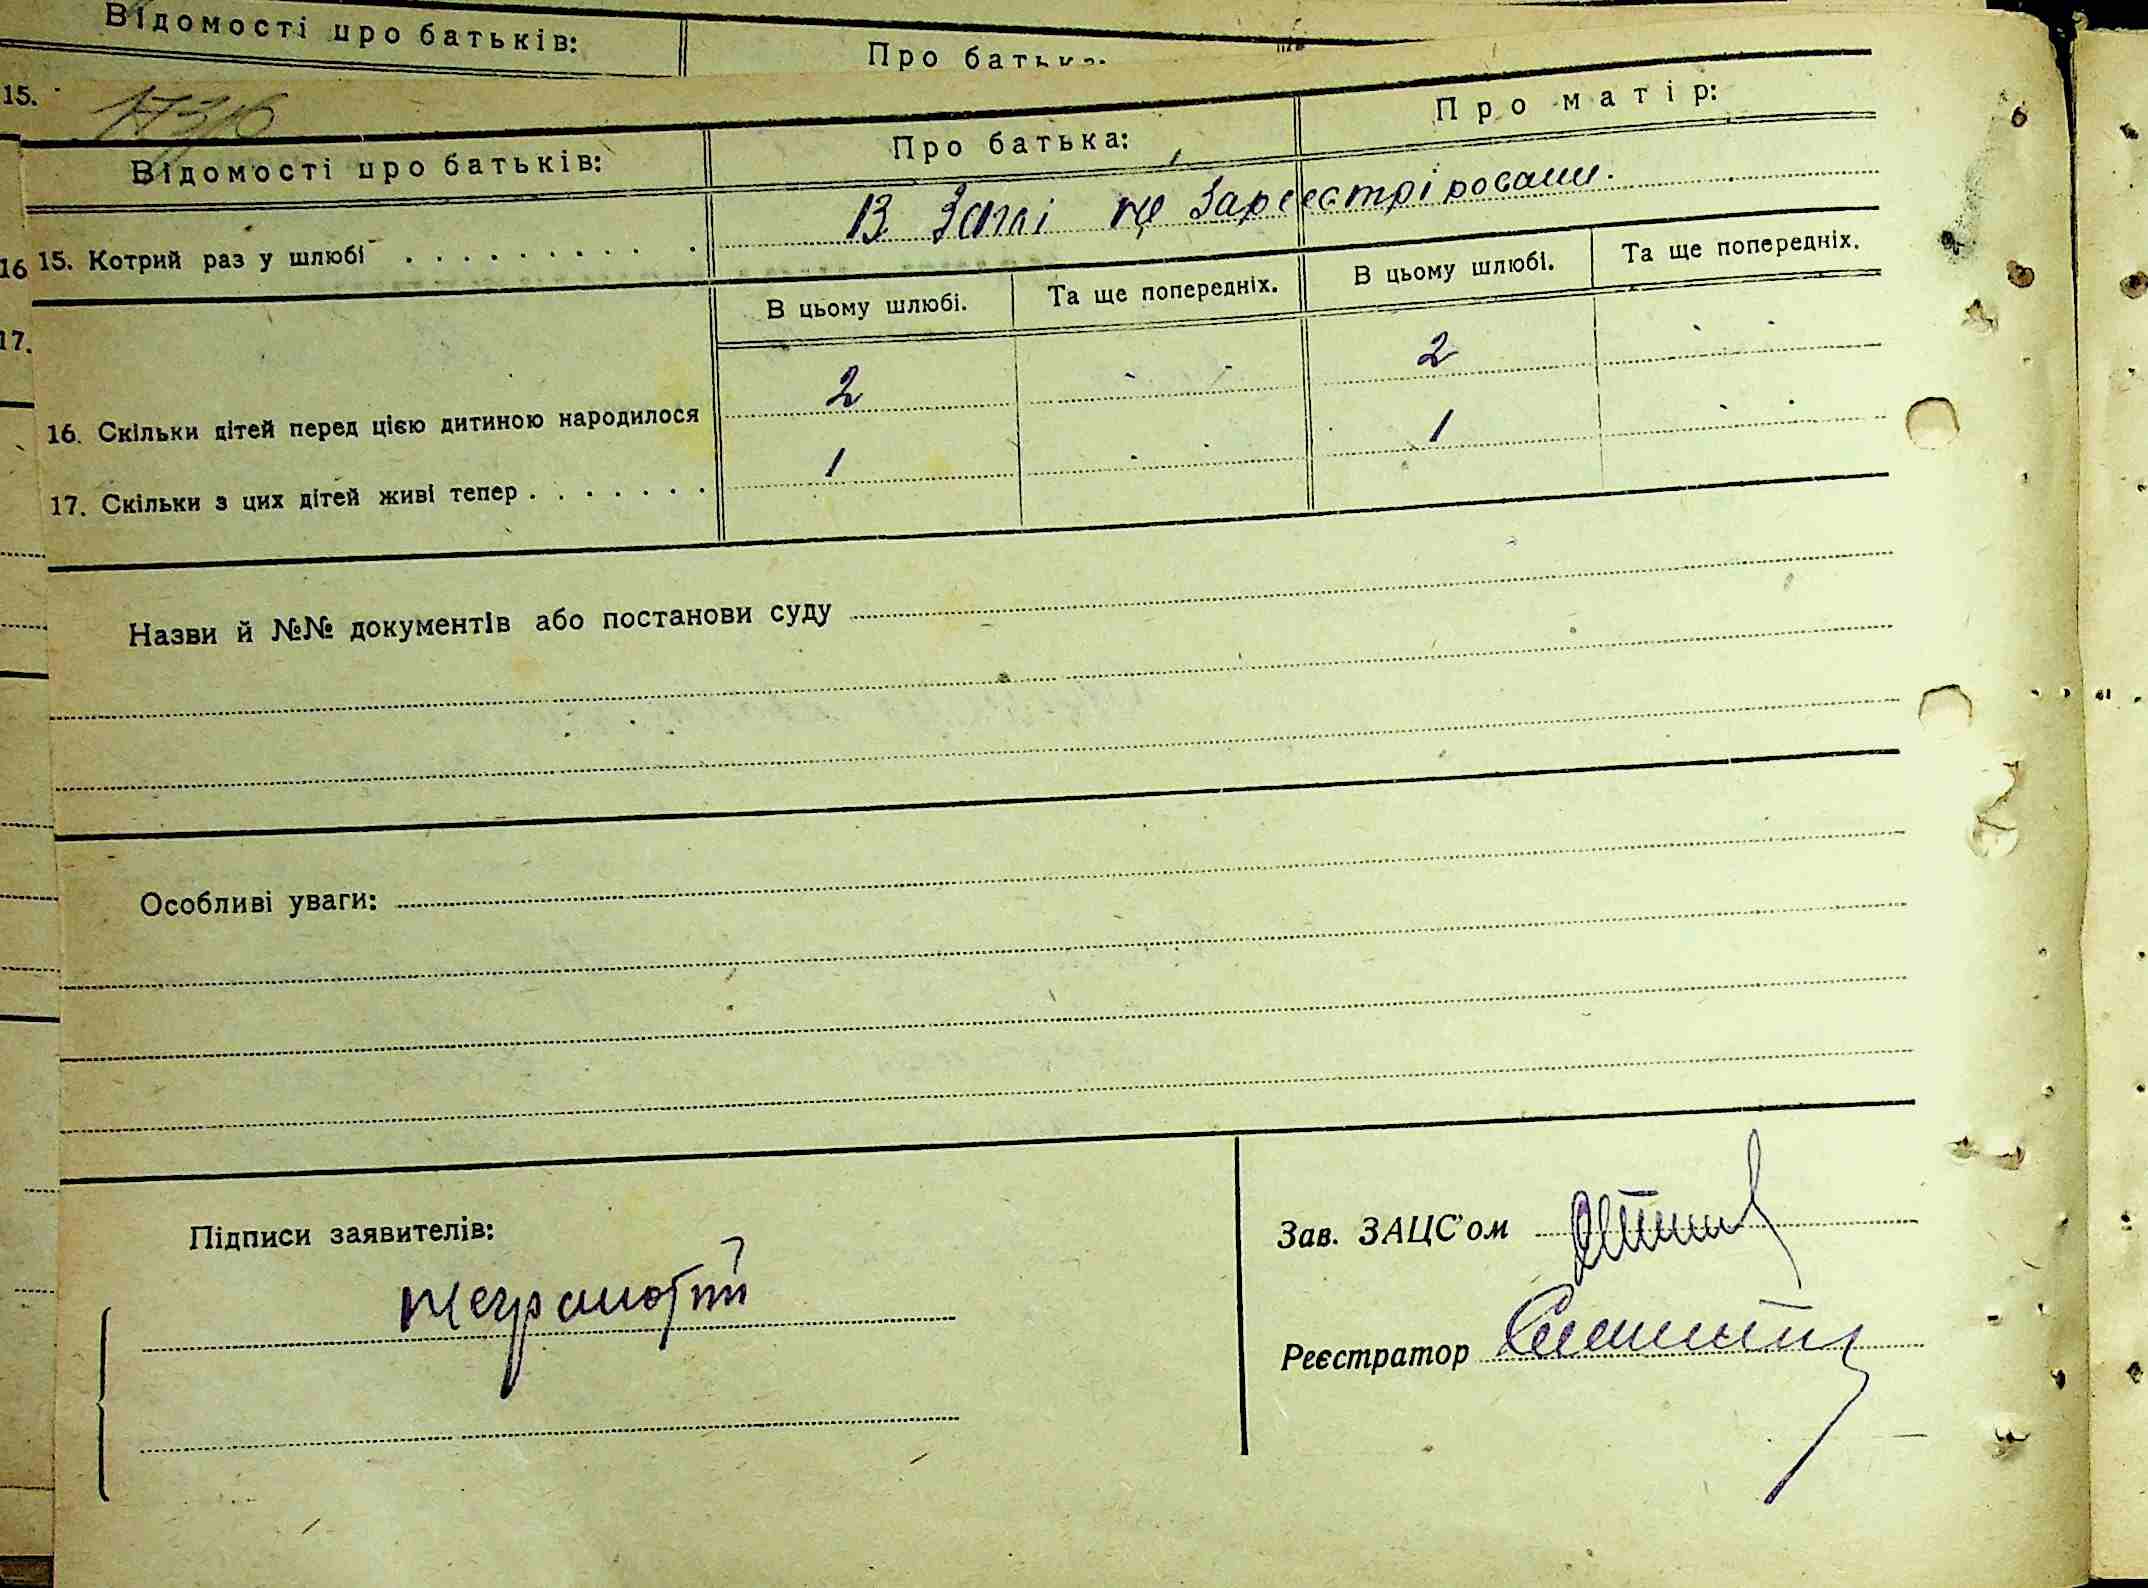 Відомості про батьків:
Про батька:
15.
Відомості про батьків:
Про батька:
Про матір:
В Загсі не зарєєстріровани.
16 15. Котрий раз у шлюбі . . . . . . . . . .
В цьому шлюбі.
Та ще попередніх.
В цьому шлюбі.
Та ще попередніх.
17.
2
2
16. Скільки дітей перед цією дитиною народилося
1
1
17. Скільки з цих дітей живі тепер . . . . . . .
Назви й №№ документів або постанови суду
Особливі уваги:
Підписи заявителів:
Зав. ЗАЦС'ом
неграмотний
Реєстратор